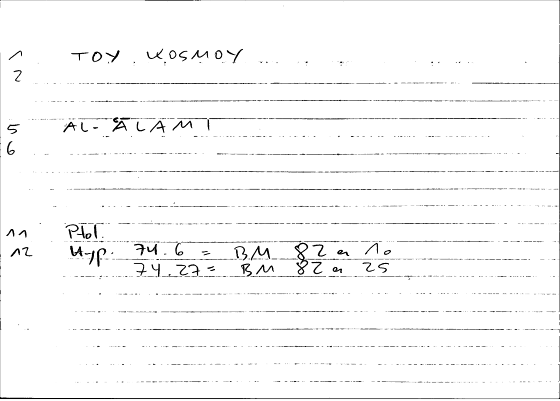 1 ΤΟΥ ΚΟSΜΟΥ
2
5 AL-ʿĀLAMĪ
6
11 Ptol.
12 Hyp. 74.6 = BM 82 a 10
74.27 = BM 82 a 25